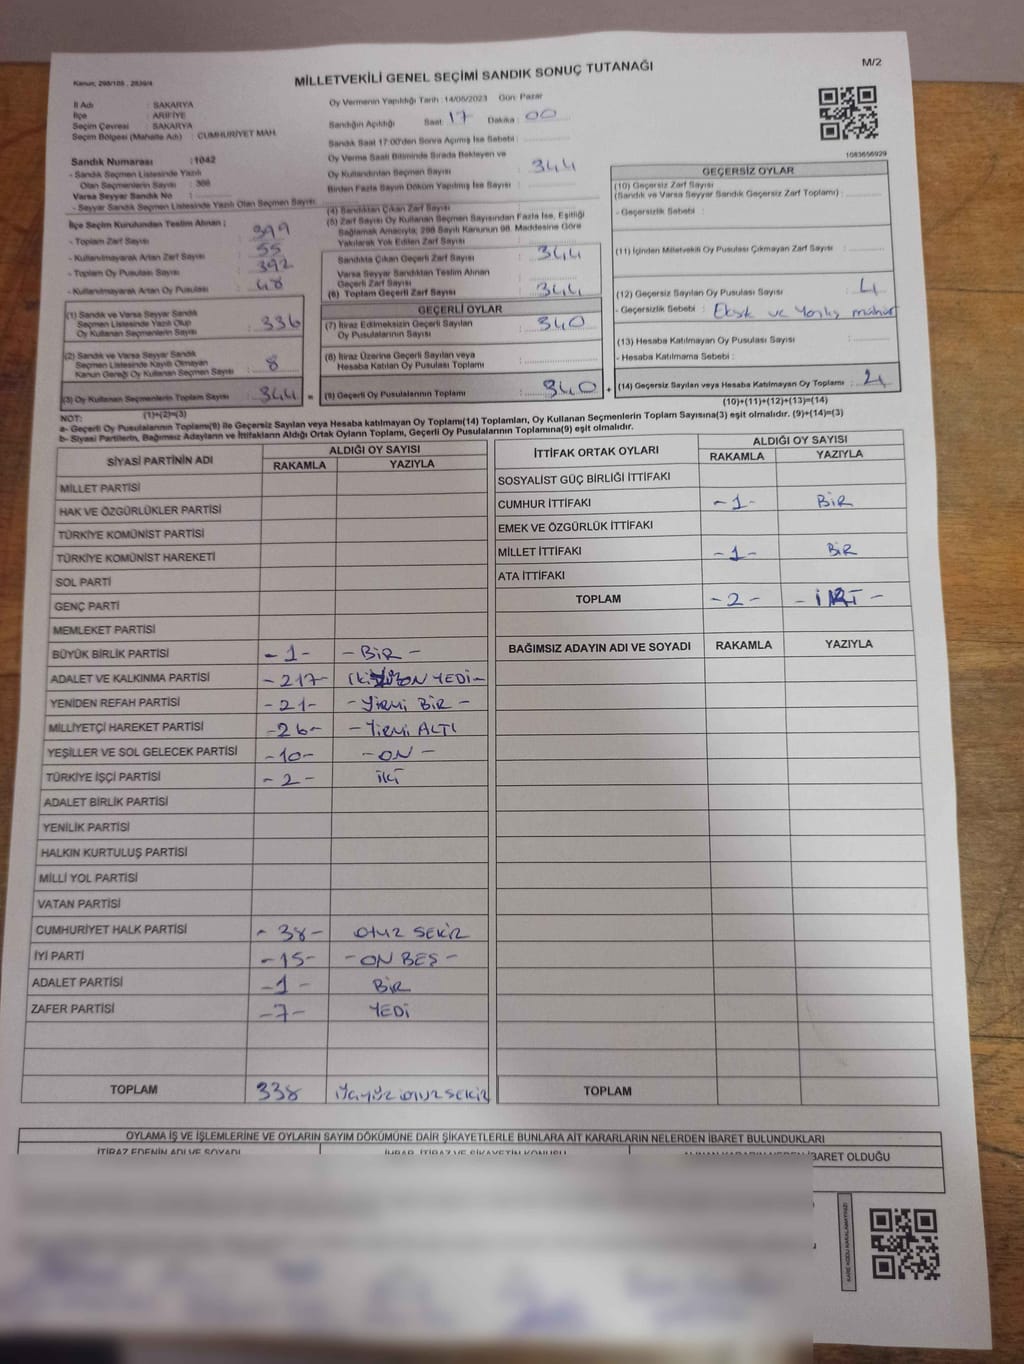 Kanun: 298/105 , 2839/4
MİLLETVEKİLİ GENEL SEÇİMİ SANDIK SONUÇ TUTANAĞI
M/2
İl Adı : SAKARYA
İlçe : ARİFİYE
Seçim Çevresi : SAKARYA
Seçim Bölgesi (Mahalle Adı) : CUMHURİYET MAH.
Oy Vermenin Yapıldığı Tarih : 14/05/2023 Gün: Pazar
Sandığın Açıldığı Saat 17 Dakika : 00
Sandık Saat 17:00'den Sonra Açılmış İse Sebebi :
Sandık Numarası : 1042
- Sandık Seçmen Listesinde Yazılı
Olan Seçmenlerin Sayısı :
Varsa Seyyar Sandık No :
- Seyyar Sandık Seçmen Listesinde Yazılı Olan Seçmen Sayısı
Oy Verme Saati Bitiminde Sırada Bekleyen ve
Oy Kullandırılan Seçmen Sayısı : 344
Birden Fazla Sayım Döküm Yapılmış İse Sayısı :
1083656929
İlçe Seçim Kurulundan Teslim Alınan ;
- Toplam Zarf Sayısı : 399
- Kullanılmayarak Artan Zarf Sayısı : 55
- Toplam Oy Pusulası Sayısı : 392
- Kullanılmayarak Artan Oy Pusulası : 48
(1) Sandık ve Varsa Seyyar Sandık
Seçmen Listesinde Yazılı Olup
Oy Kullanan Seçmenlerin Sayısı : 336
(2) Sandık ve Varsa Seyyar Sandık
Seçmen Listesinde Kayıtlı Olmayan
Kanun Gereği Oy Kullanan Seçmen Sayısı : 8
(3) Oy Kullanan Seçmenlerin Toplam Sayısı : 344
(1)+(2)=(3)
(4) Sandıktan Çıkan Zarf Sayısı :
(5) Zarf Sayısı Oy Kullanan Seçmen Sayısından Fazla İse, Eşitliği
Sağlamak Amacıyla; 298 Sayılı Kanunun 98. Maddesine Göre
Yakılarak Yok Edilen Zarf Sayısı :
Sandıkta Çıkan Geçerli Zarf Sayısı : 344
Varsa Seyyar Sandıktan Teslim Alınan
Geçerli Zarf Sayısı :
(6) Toplam Geçerli Zarf Sayısı : 344
GEÇERLİ OYLAR
(7) İtiraz Edilmeksizin Geçerli Sayılan
Oy Pusulasının Sayısı : 340
(8) İtiraz Üzerine Geçerli Sayılan veya
Hesaba Katılan Oy Pusulası Toplamı :
= (9) Geçerli Oy Pusulalarının Toplamı : 340 +
GEÇERSİZ OYLAR
(10) Geçersiz Zarf Sayısı
(Sandık ve Varsa Seyyar Sandık Geçersiz Zarf Toplamı) :
- Geçersizlik Sebebi :
(11) İçinden Milletvekili Oy Pusulası Çıkmayan Zarf Sayısı :
(12) Geçersiz Sayılan Oy Pusulası Sayısı : 4
- Geçersizlik Sebebi : Eksik ve Yanlış mühür
(13) Hesaba Katılmayan Oy Pusulası Sayısı :
- Hesaba Katılmama Sebebi :
(14) Geçersiz Sayılan veya Hesaba Katılmayan Oy Toplamı : 4
(10)+(11)+(12)+(13)=(14)
NOT:
a- Geçerli Oy Pusulalarının Toplamı(9) ile Geçersiz Sayılan veya Hesaba katılmayan Oy Toplamı(14) Toplamları, Oy Kullanan Seçmenlerin Toplam Sayısına(3) eşit olmalıdır. (9)+(14)=(3)
b- Siyasi Partilerin, Bağımsız Adayların ve İttifakların Aldığı Ortak Oyların Toplamı, Geçerli Oy Pusulalarının Toplamına(9) eşit olmalıdır.
SİYASİ PARTİNİN ADI
ALDIĞI OY SAYISI
RAKAMLA YAZIYLA
MİLLET PARTİSİ
HAK VE ÖZGÜRLÜKLER PARTİSİ
TÜRKİYE KOMÜNİST PARTİSİ
TÜRKİYE KOMÜNİST HAREKETİ
SOL PARTİ
GENÇ PARTİ
MEMLEKET PARTİSİ
BÜYÜK BİRLİK PARTİSİ - 1 - - BİR -
ADALET VE KALKINMA PARTİSİ - 217 - İKİ YÜZ ON YEDİ -
YENİDEN REFAH PARTİSİ - 21 - - YİRMİ BİR -
MİLLİYETÇİ HAREKET PARTİSİ - 26 - - YİRMİ ALTI
YEŞİLLER VE SOL GELECEK PARTİSİ - 10 - - ON -
TÜRKİYE İŞÇİ PARTİSİ - 2 - İKİ
ADALET BİRLİK PARTİSİ
YENİLİK PARTİSİ
HALKIN KURTULUŞ PARTİSİ
MİLLİ YOL PARTİSİ
VATAN PARTİSİ
CUMHURİYET HALK PARTİSİ - 38 - OTUZ SEKİZ
İYİ PARTİ - 15 - - ON BEŞ -
ADALET PARTİSİ - 1 - BİR
ZAFER PARTİSİ - 7 - YEDİ
TOPLAM 338 üçyüz otuz SEKİZ
İTTİFAK ORTAK OYLARI
ALDIĞI OY SAYISI
RAKAMLA YAZIYLA
SOSYALİST GÜÇ BİRLİĞİ İTTİFAKI
CUMHUR İTTİFAKI - 1 - BİR
EMEK VE ÖZGÜRLÜK İTTİFAKI
MİLLET İTTİFAKI - 1 - BİR
ATA İTTİFAKI
TOPLAM - 2 - - İKİ -
BAĞIMSIZ ADAYIN ADI VE SOYADI RAKAMLA YAZIYLA
TOPLAM
OYLAMA İŞ VE İŞLEMLERİNE VE OYLARIN SAYIM DÖKÜMÜNE DAİR ŞİKAYETLERLE BUNLARA AİT KARARLARIN NELERDEN İBARET BULUNDUKLARI
İTİRAZ EDENİN ADI VE SOYADI İHBAR, İTİRAZ VE ŞİKAYETİN KONUSU ALINAN KARARIN NEDEN İBARET OLDUĞU